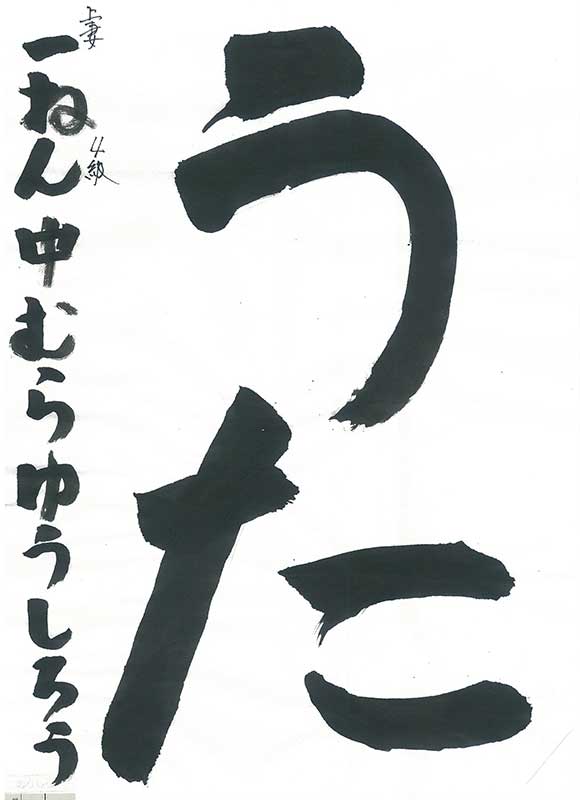 うた
一ねん中むらゆうしろう
上妻
4級